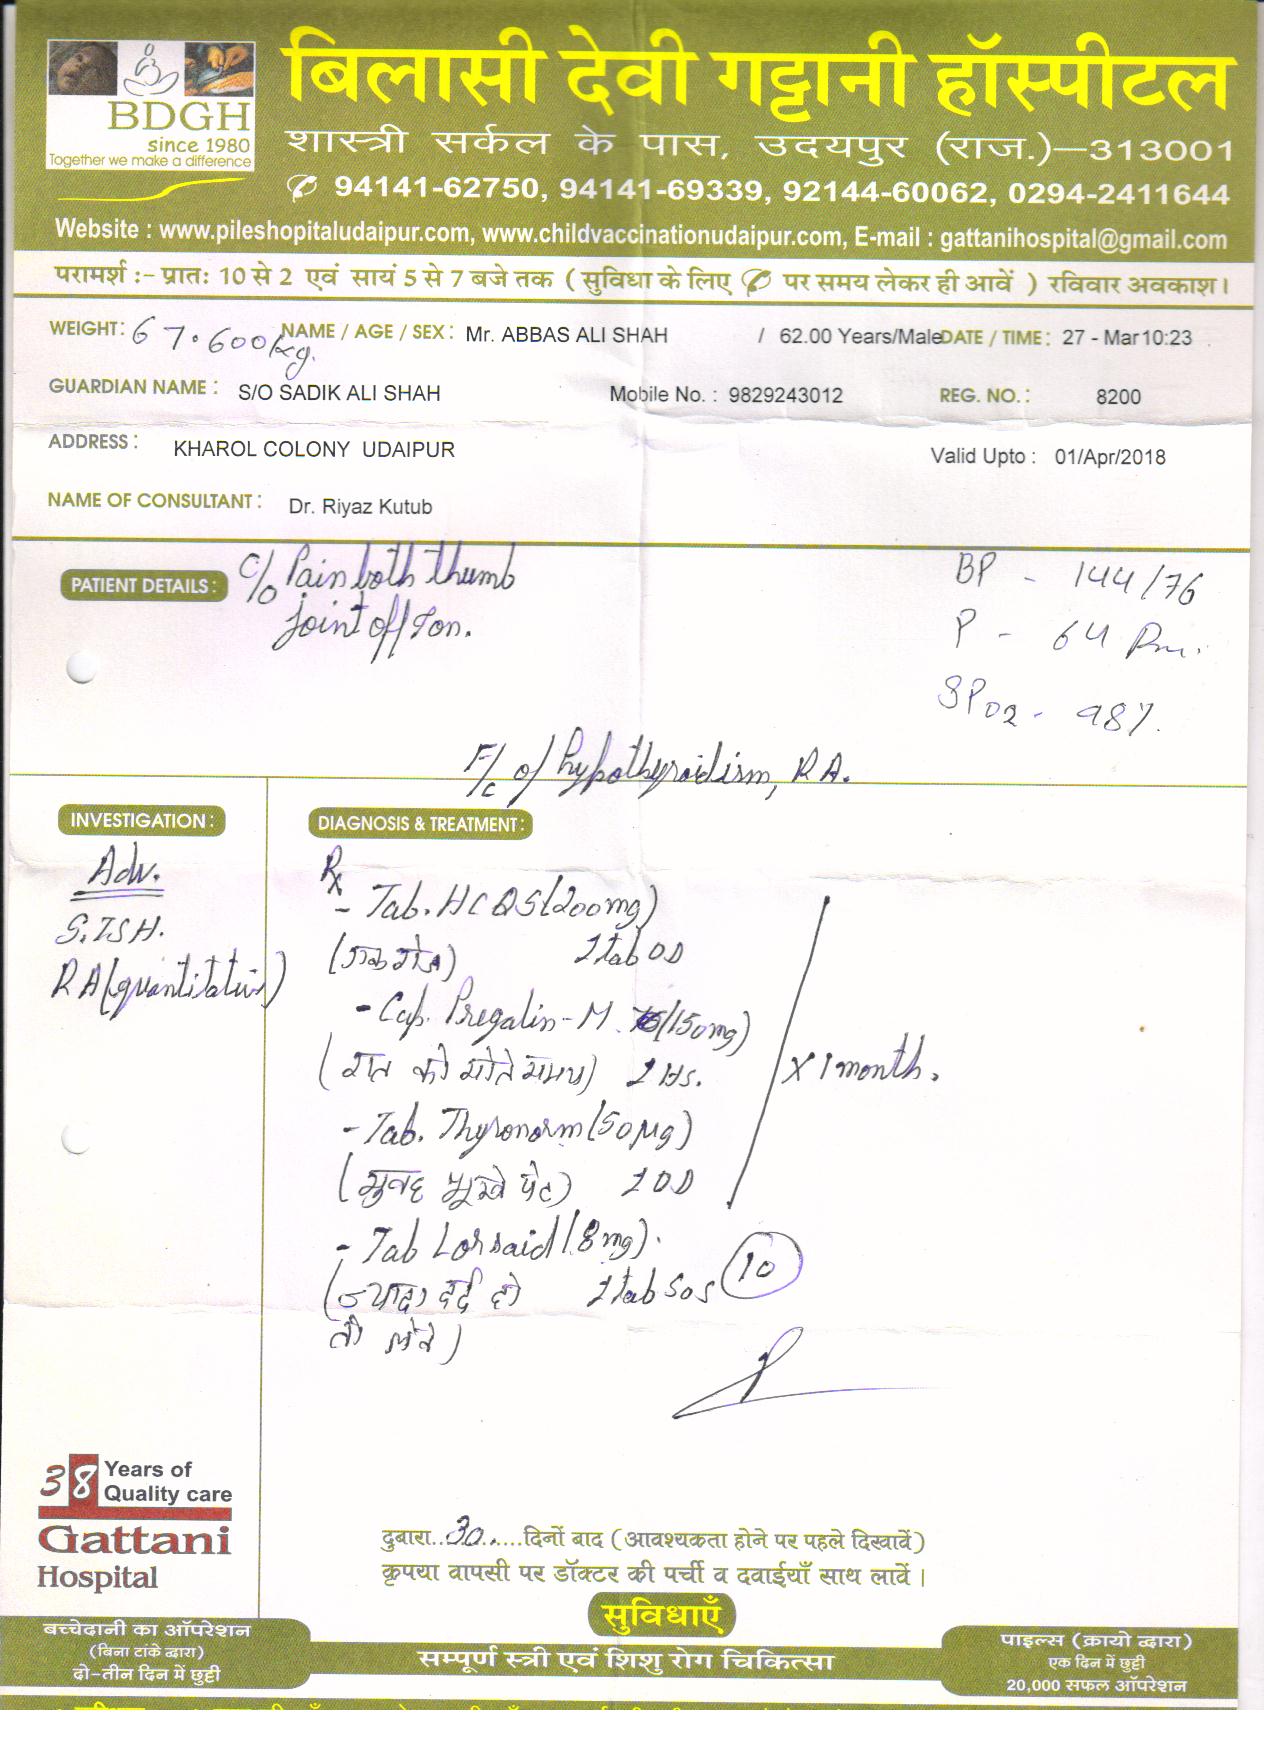 बिलासी देवी गट्टानी हॉस्पीटल
BDGH
since 1980
Together we make a difference
शास्त्री सर्कल के पास, उदयपुर (राज.)–313001
✆ 94141-62750, 94141-69339, 92144-60062, 0294-2411644
Website : www.pileshopitaludaipur.com, www.childvaccinationudaipur.com, E-mail : gattanihospital@gmail.com
परामर्श :- प्रातः 10 से 2 एवं सायं 5 से 7 बजे तक ( सुविधा के लिए ✆ पर समय लेकर ही आवें ) रविवार अवकाश।
WEIGHT: 67.600kg. NAME / AGE / SEX : Mr. ABBAS ALI SHAH / 62.00 Years/Male DATE / TIME : 27 - Mar 10:23
GUARDIAN NAME : S/O SADIK ALI SHAH Mobile No. : 9829243012 REG. NO. : 8200
ADDRESS : KHAROL COLONY UDAIPUR Valid Upto : 01/Apr/2018
NAME OF CONSULTANT : Dr. Riyaz Kutub
PATIENT DETAILS : C/o Pain both thumb
joint off/on.
BP - 144/76
P - 64 Pm.
SPO2 - 98%.
F/c of hypothyroidism, RA.
INVESTIGATION :
Adv.
S.TSH.
RA (quantitative)
DIAGNOSIS & TREATMENT :
Rx
- Tab. HCQS (200mg)
(एक रोज) 1 tab OD
- Cap. Pregalin-M (150mg)
(रात को सोते समय) 1 Hs.
- Tab. Thyronorm (50µg)
(सुबह भूखे पेट) 1 OD
x 1 month.
- Tab Lorsaid (8mg).
(ज्यादा दर्द हो 1 tab SOS 10
तो लेवे)
38 Years of
Quality care
Gattani
Hospital
दुबारा..30.....दिनों बाद ( आवश्यकता होने पर पहले दिखावें )
कृपया वापसी पर डॉक्टर की पर्ची व दवाईयाँ साथ लावें ।
सुविधाएँ
बच्चेदानी का ऑपरेशन
(बिना टांके द्वारा)
दो-तीन दिन में छुट्टी
सम्पूर्ण स्त्री एवं शिशु रोग चिकित्सा
पाइल्स (क्रायो द्वारा)
एक दिन में छुट्टी
20,000 सफल ऑपरेशन